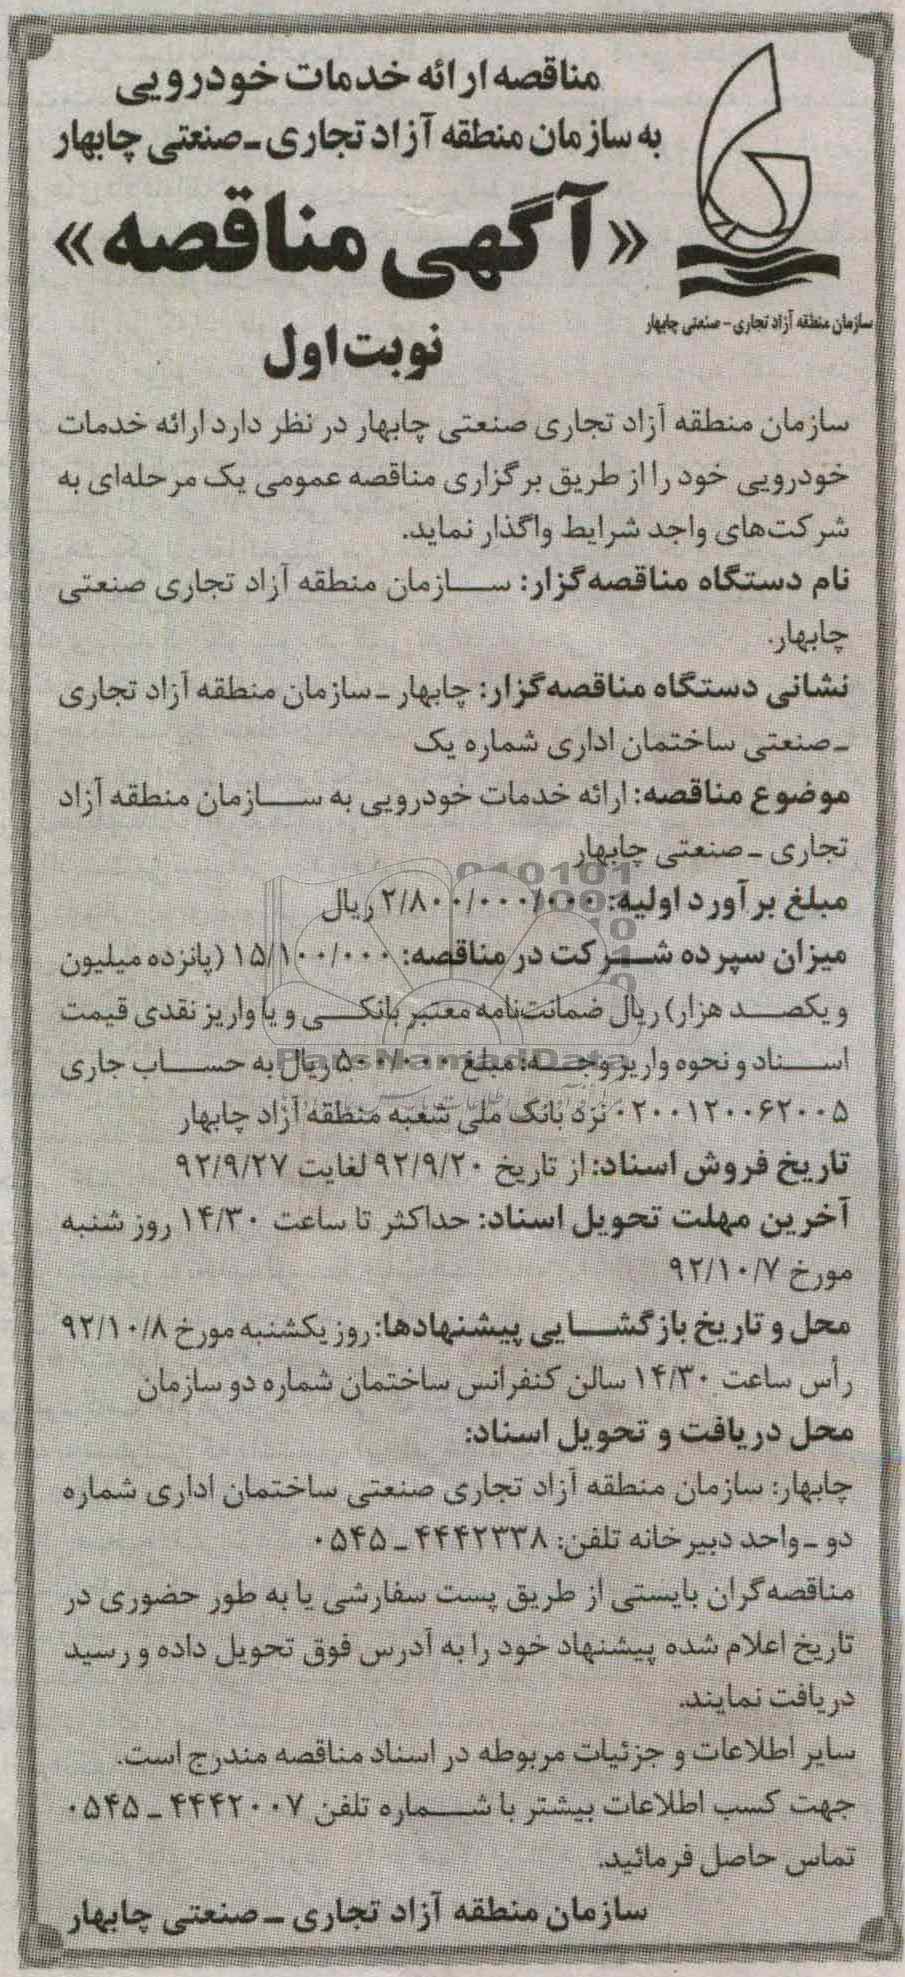 مناقصه ارائه خدمات خودرویی
به سازمان منطقه آزاد تجاری ـ صنعتی چابهار
«آگهی مناقصه»
سازمان منطقه آزاد تجاری - صنعتی چابهار
نوبت اول
سازمان منطقه آزاد تجاری صنعتی چابهار در نظر دارد ارائه خدمات
خودرویی خود را از طریق برگزاری مناقصه عمومی یک مرحله‌ای به
شرکت‌های واجد شرایط واگذار نماید.
نام دستگاه مناقصه‌گزار: سازمان منطقه آزاد تجاری صنعتی
چابهار.
نشانی دستگاه مناقصه‌گزار: چابهار ـ سازمان منطقه آزاد تجاری
ـ صنعتی ساختمان اداری شماره یک
موضوع مناقصه: ارائه خدمات خودرویی به سازمان منطقه آزاد
تجاری ـ صنعتی چابهار
مبلغ برآورد اولیه: ۲/۸۰۰/۰۰۰/۰۰۰ ریال
میزان سپرده شرکت در مناقصه: ۱۵/۱۰۰/۰۰۰ (پانزده میلیون
و یکصد هزار) ریال ضمانت‌نامه معتبر بانکی و یا واریز نقدی قیمت
اسناد و نحوه واریز وجه: مبلغ ۵۰۰/۰۰۰ ریال به حساب جاری
۰۲۰۰۱۲۰۰۶۲۰۰۵ نزد بانک ملی شعبه منطقه آزاد چابهار
ParsNamadData
تاریخ فروش اسناد: از تاریخ ۹۲/۹/۲۰ لغایت ۹۲/۹/۲۷
آخرین مهلت تحویل اسناد: حداکثر تا ساعت ۱۴/۳۰ روز شنبه
مورخ ۹۲/۱۰/۷
محل و تاریخ بازگشایی پیشنهادها: روز یکشنبه مورخ ۹۲/۱۰/۸
رأس ساعت ۱۴/۳۰ سالن کنفرانس ساختمان شماره دو سازمان
محل دریافت و تحویل اسناد:
چابهار: سازمان منطقه آزاد تجاری صنعتی ساختمان اداری شماره
دو ـ واحد دبیرخانه تلفن: ۴۴۴۲۳۳۸ ـ ۰۵۴۵
مناقصه‌گران بایستی از طریق پست سفارشی یا به طور حضوری در
تاریخ اعلام شده پیشنهاد خود را به آدرس فوق تحویل داده و رسید
دریافت نمایند.
سایر اطلاعات و جزئیات مربوطه در اسناد مناقصه مندرج است.
جهت کسب اطلاعات بیشتر با شماره تلفن ۴۴۴۲۰۰۷ ـ ۰۵۴۵
تماس حاصل فرمائید.
سازمان منطقه آزاد تجاری ـ صنعتی چابهار